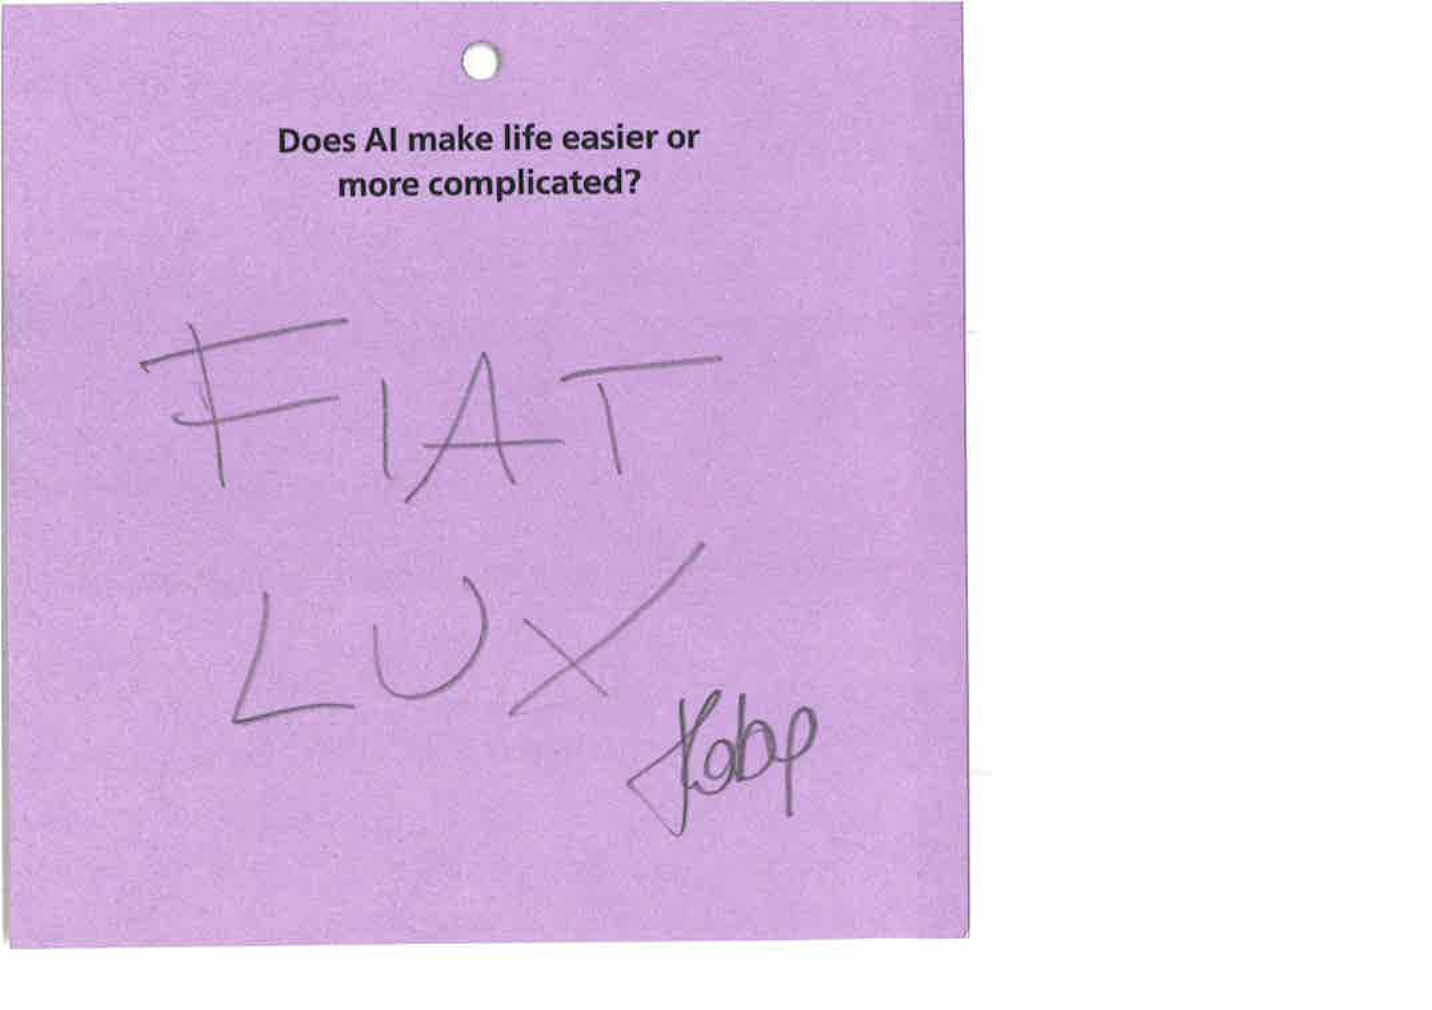 Does AI make life easier or
more complicated?
FIAT
LUX